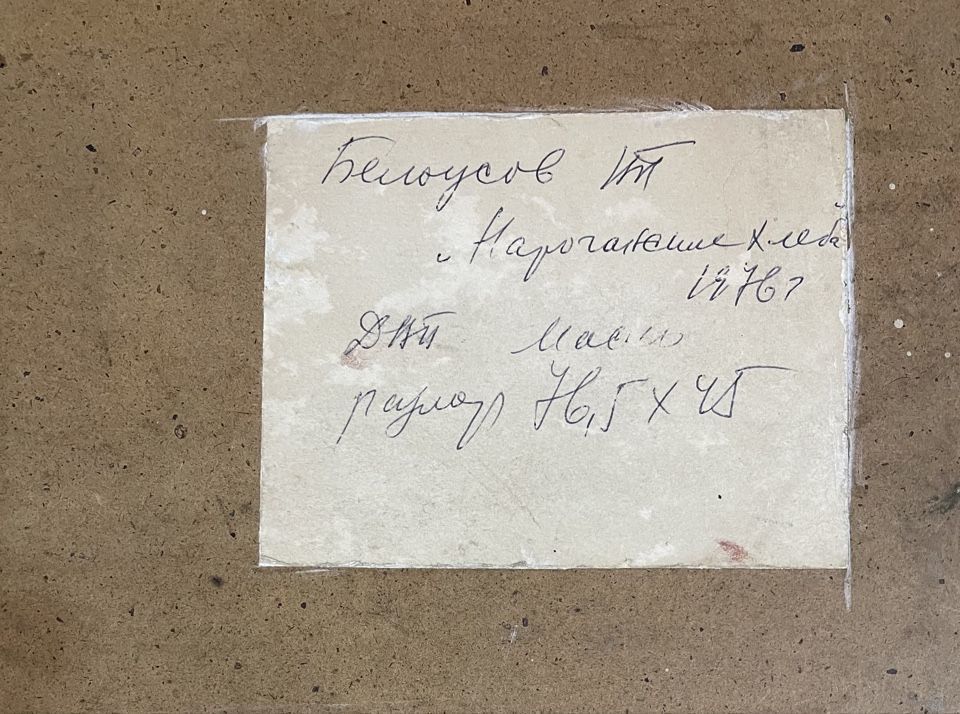 Белоусов ПТ
„Нарочанские хлеба
1976 г
ДВП масло
размер 76,5 х 45